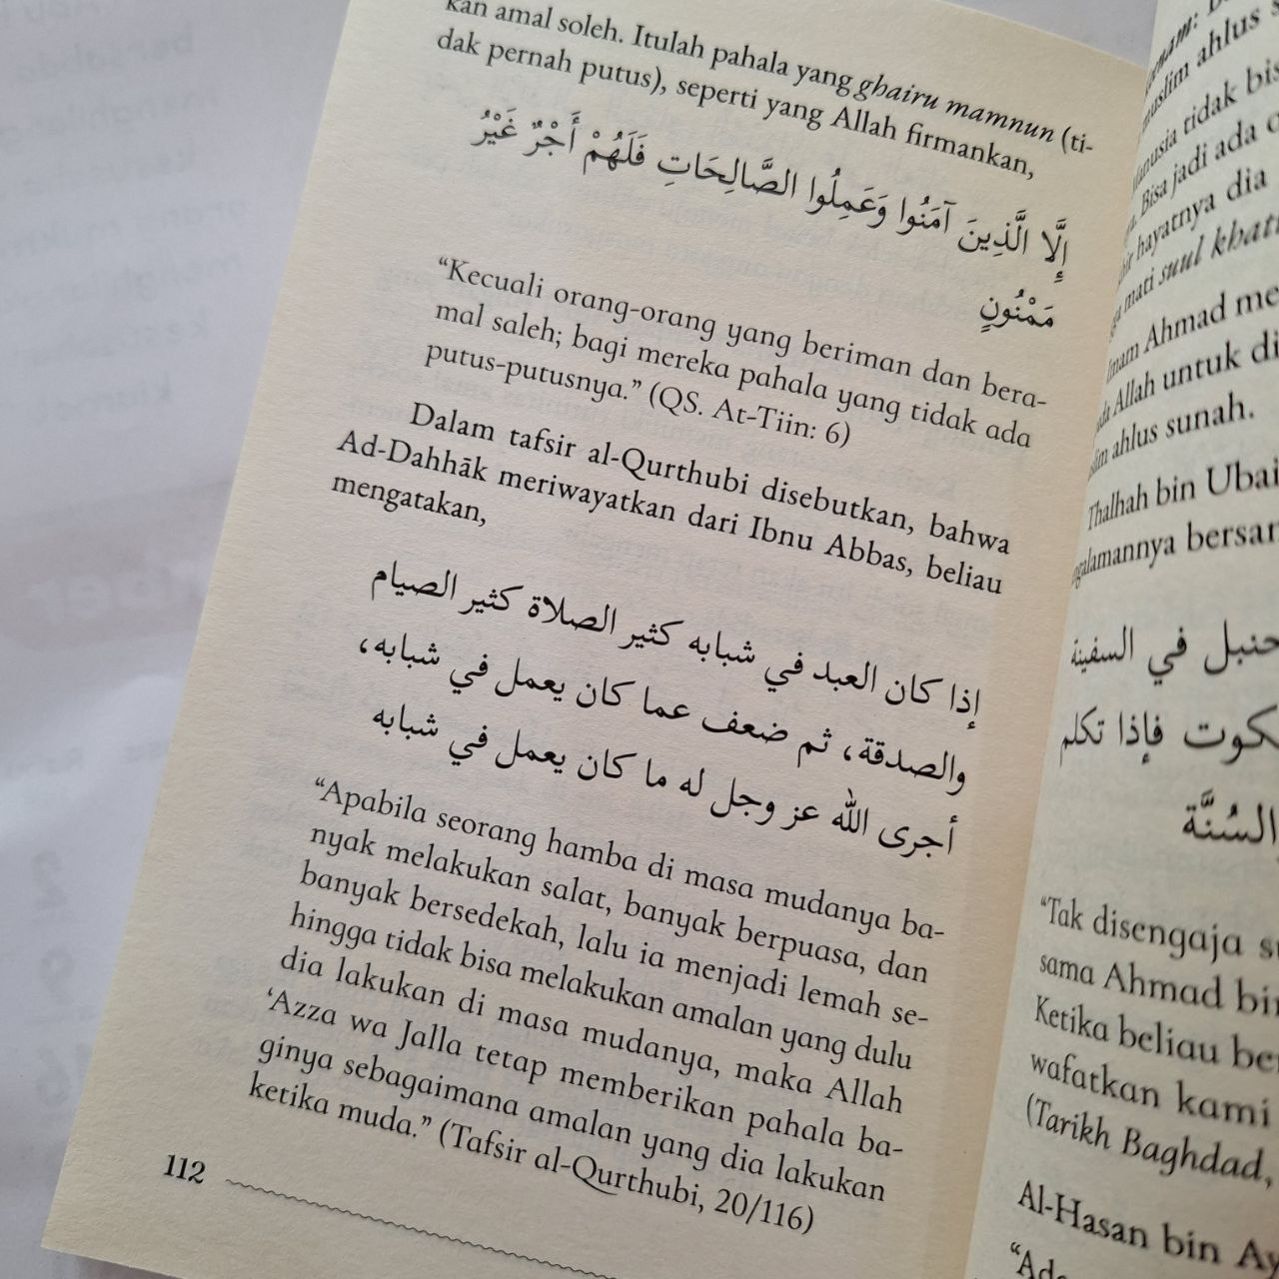 kan amal soleh. Itulah pahala yang ghairu mamnun (ti-
dak pernah putus), seperti yang Allah firmankan,
إِلَّا الَّذِينَ آمَنُوا وَعَمِلُوا الصَّالِحَاتِ فَلَهُمْ أَجْرٌ غَيْرُ
مَمْنُونٍ
“Kecuali orang-orang yang beriman dan bera-
mal saleh; bagi mereka pahala yang tidak ada
putus-putusnya.” (QS. At-Tiin: 6)
Dalam tafsir al-Qurthubi disebutkan, bahwa
Ad-Dahhāk meriwayatkan dari Ibnu Abbas, beliau
mengatakan,
إذا كان العبد في شبابه كثير الصلاة كثير الصيام
والصدقة، ثم ضعف عما كان يعمل في شبابه،
أجرى الله عز وجل له ما كان يعمل في شبابه
“Apabila seorang hamba di masa mudanya ba-
nyak melakukan salat, banyak berpuasa, dan
banyak bersedekah, lalu ia menjadi lemah se-
hingga tidak bisa melakukan amalan yang dulu
dia lakukan di masa mudanya, maka Allah
‘Azza wa Jalla tetap memberikan pahala ba-
ginya sebagaimana amalan yang dia lakukan
ketika muda.” (Tafsir al-Qurthubi, 20/116)
112
muslim ahlus
tidak
Bisa jadi ada
hayatnya dia
mati suul
Ahmad
Allah untuk
ahlus sunah.
Thalhah bin
bersam
حنبل في السفينة
فإذا تكلم
السُنَّة
“Tak disengaja
sama Ahmad bin
Ketika beliau
wafatkan kami
(Tarikh Baghdad,
Al-Hasan bin